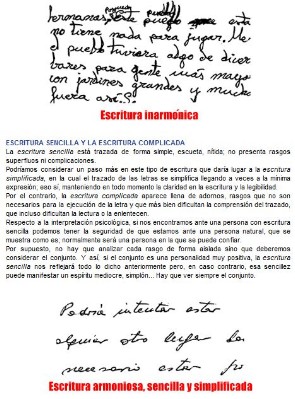 hermanas, este pueblo está
no tiene nada para jugar. Me
el pueblo tuviera algo de diver
para gente más mayor
con jardines grandes y mucho
fuera así?
Escritura inarmónica
ESCRITURA SENCILLA Y LA ESCRITURA COMPLICADA
La escritura sencilla está trazada de forma simple, escueta, nítida; no presenta rasgos
superfluos ni complicaciones.
Podríamos considerar un paso más en este tipo de escritura que daría lugar a la escritura
simplificada, en la cual el trazado de las letras se simplifica llegando a veces a la mínima
expresión; eso sí, manteniendo en todo momento la claridad en la escritura y la legibilidad.
Por el contrario, la escritura complicada aparece llena de adornos, rasgos que no son
necesarios para la ejecución de la letra y que más bien dificultan la comprensión del trazado,
que incluso dificultan la lectura o la enlentecen.
Respecto a la interpretación psicológica, si nos encontramos ante una persona con escritura
sencilla podemos tener la seguridad de que estamos ante una persona natural, que se
muestra como es; normalmente será una persona en la que se puede confiar.
Por supuesto, no hay que analizar cada rasgo de forma aislada sino que deberemos
considerar el conjunto. Y así, si el conjunto es una personalidad muy positiva, la escritura
sencilla nos reflejará todo lo dicho anteriormente pero, en caso contrario, esa sencillez
puede manifestar un espíritu mediocre, simplón... Hay que ver siempre el conjunto.
Podría intentar estar
alguien otro lugar
necesario estar
Escritura armoniosa, sencilla y simplificada